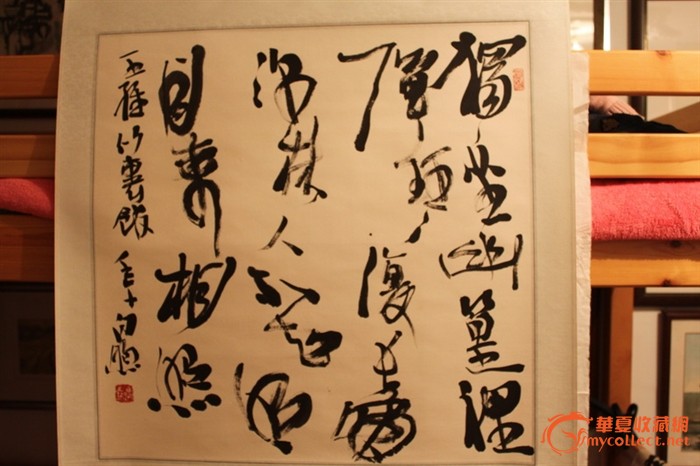 獨坐幽篁裡
彈琴復長嘯
深林人不知明
月來相照
王維竹裏館
華夏收藏網
mycollect.net